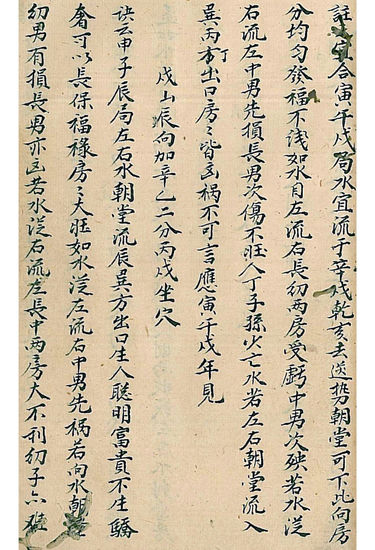 註宜合寅午戌局水宜流于辛戌乾亥去送势朝堂可下此向房
分均匀發福不浅如水自左流右長幼兩房受虧中男次殃若水泛
右流左中男先損長男次傷不旺人丁子孫火亡水若左右朝堂流入
巽丙丁方出口房〻皆凶祸不可言應寅午戌年見
戌山辰向加辛乙二分丙戌坐穴
诀云申子辰局左右水朝堂流辰巽方出口生人聪明富貴不生驕
奢可以長保福禄房〻大旺如水泛左流右中男先祸若向水朝
幼男有損長男亦凶若水泛右流左長中兩房大不利幼子亦